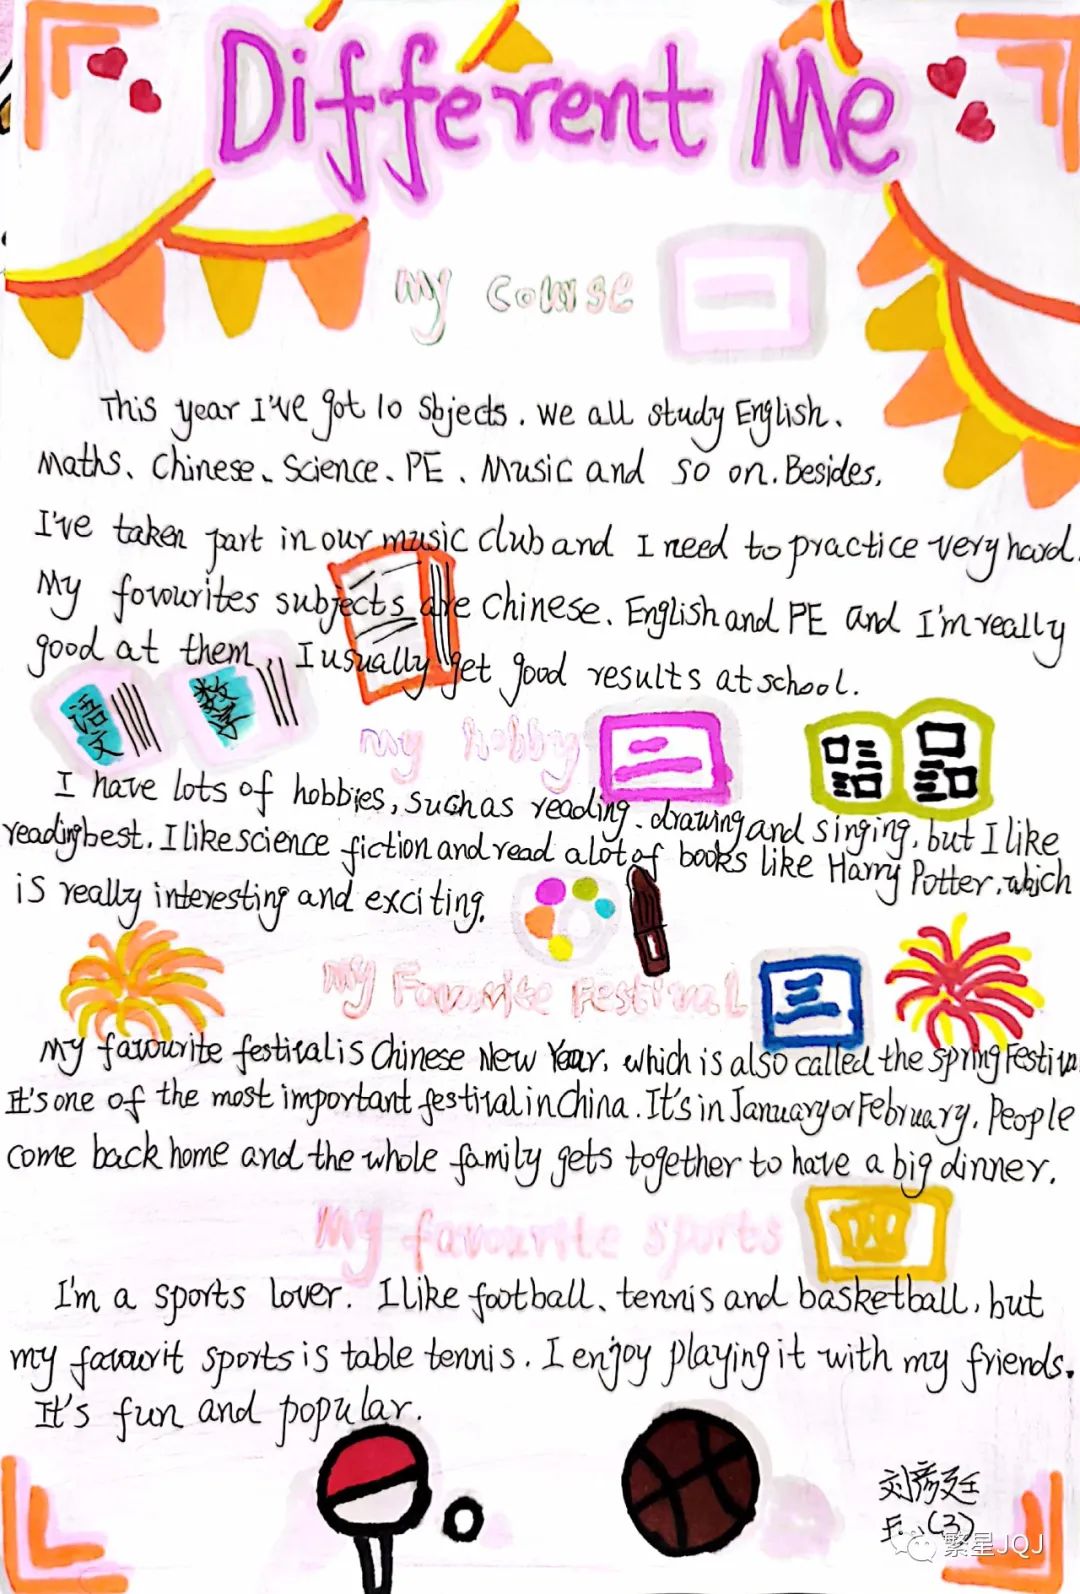 Different Me
My course 一
This year I've got 10 Sbjects. We all study English、
Maths、Chinese、Science、PE、Music and so on. Besides,
I've taken part in our music club and I need to practice very hard.
My fovourites subjects are Chinese、English and PE and I'm really
good at them. I usually get good results at school.
语文
数学
My hobby 二
I have lots of hobbies, such as reading、drawing and singing, but I like
reading best. I like science fiction and read a lot of books like Harry Potter, which
is really interesting and exciting.
My Favorite Festival 三
My favourite festival is Chinese New Year, which is also called the Spring Festival
It's one of the most important festival in China. It's in January or February. People
come back home and the whole family gets together to have a big dinner.
My favourite sports 四
I'm a sports lover. I like football、tennis and basketball, but
my favourit sports is table tennis. I enjoy playing it with my friends.
It's fun and popular.
刘彦廷
(3)
繁星JQJ